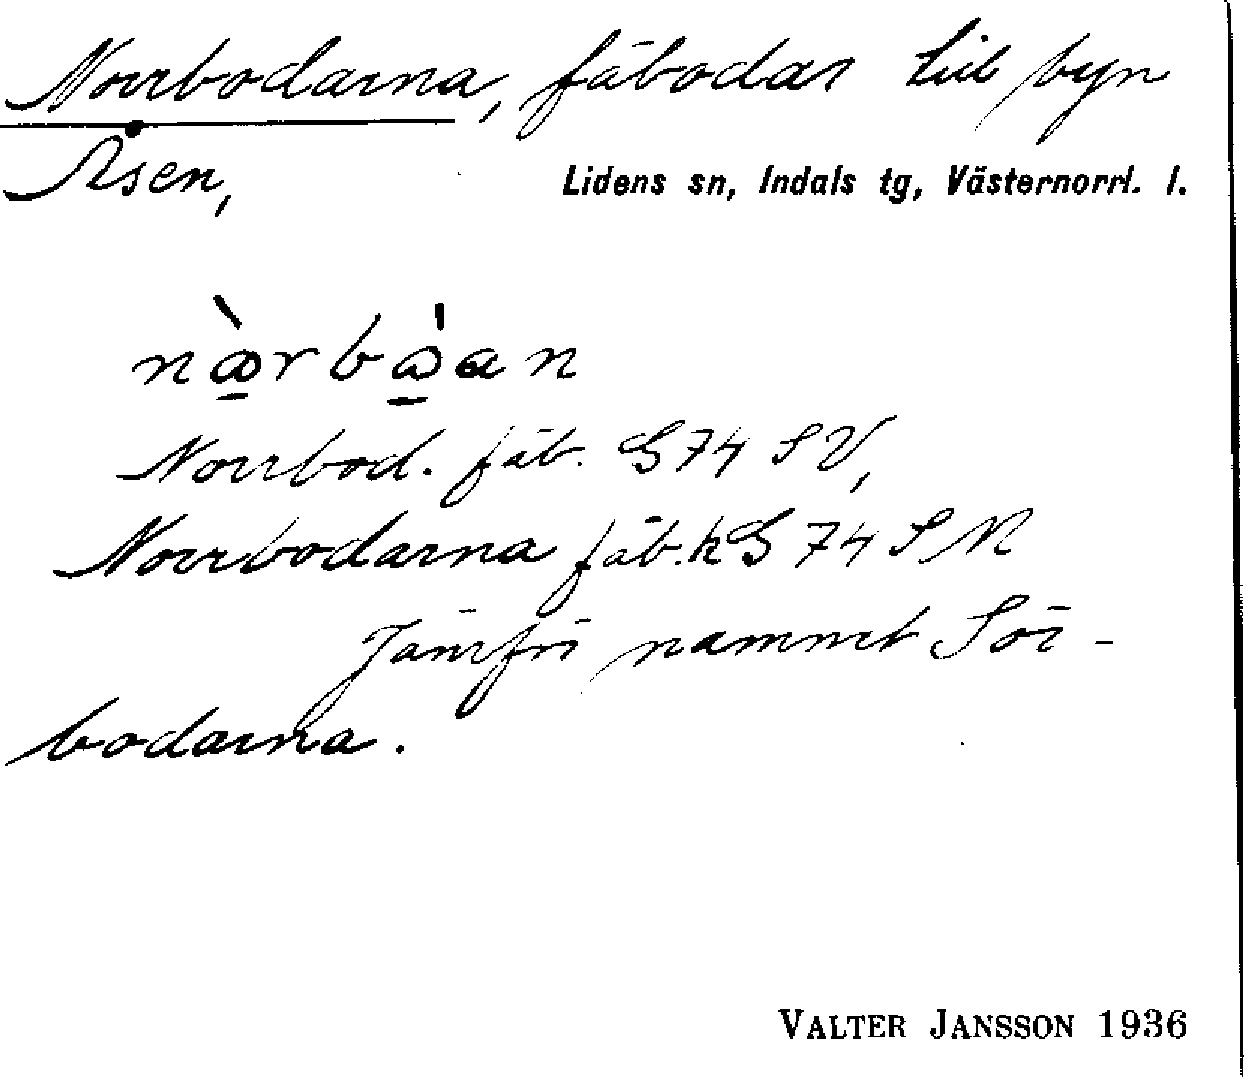 Norrbodarna, fäbodar till byn
Åsen,
Lidens sn, Indals tg, Västernorrl. l.
Norrbod. fäb. G74 SV,
Norrbodarna fäb. k G 74 S N
Jämför namnet Sör-
bodarna.
VALTER JANSSON 1936